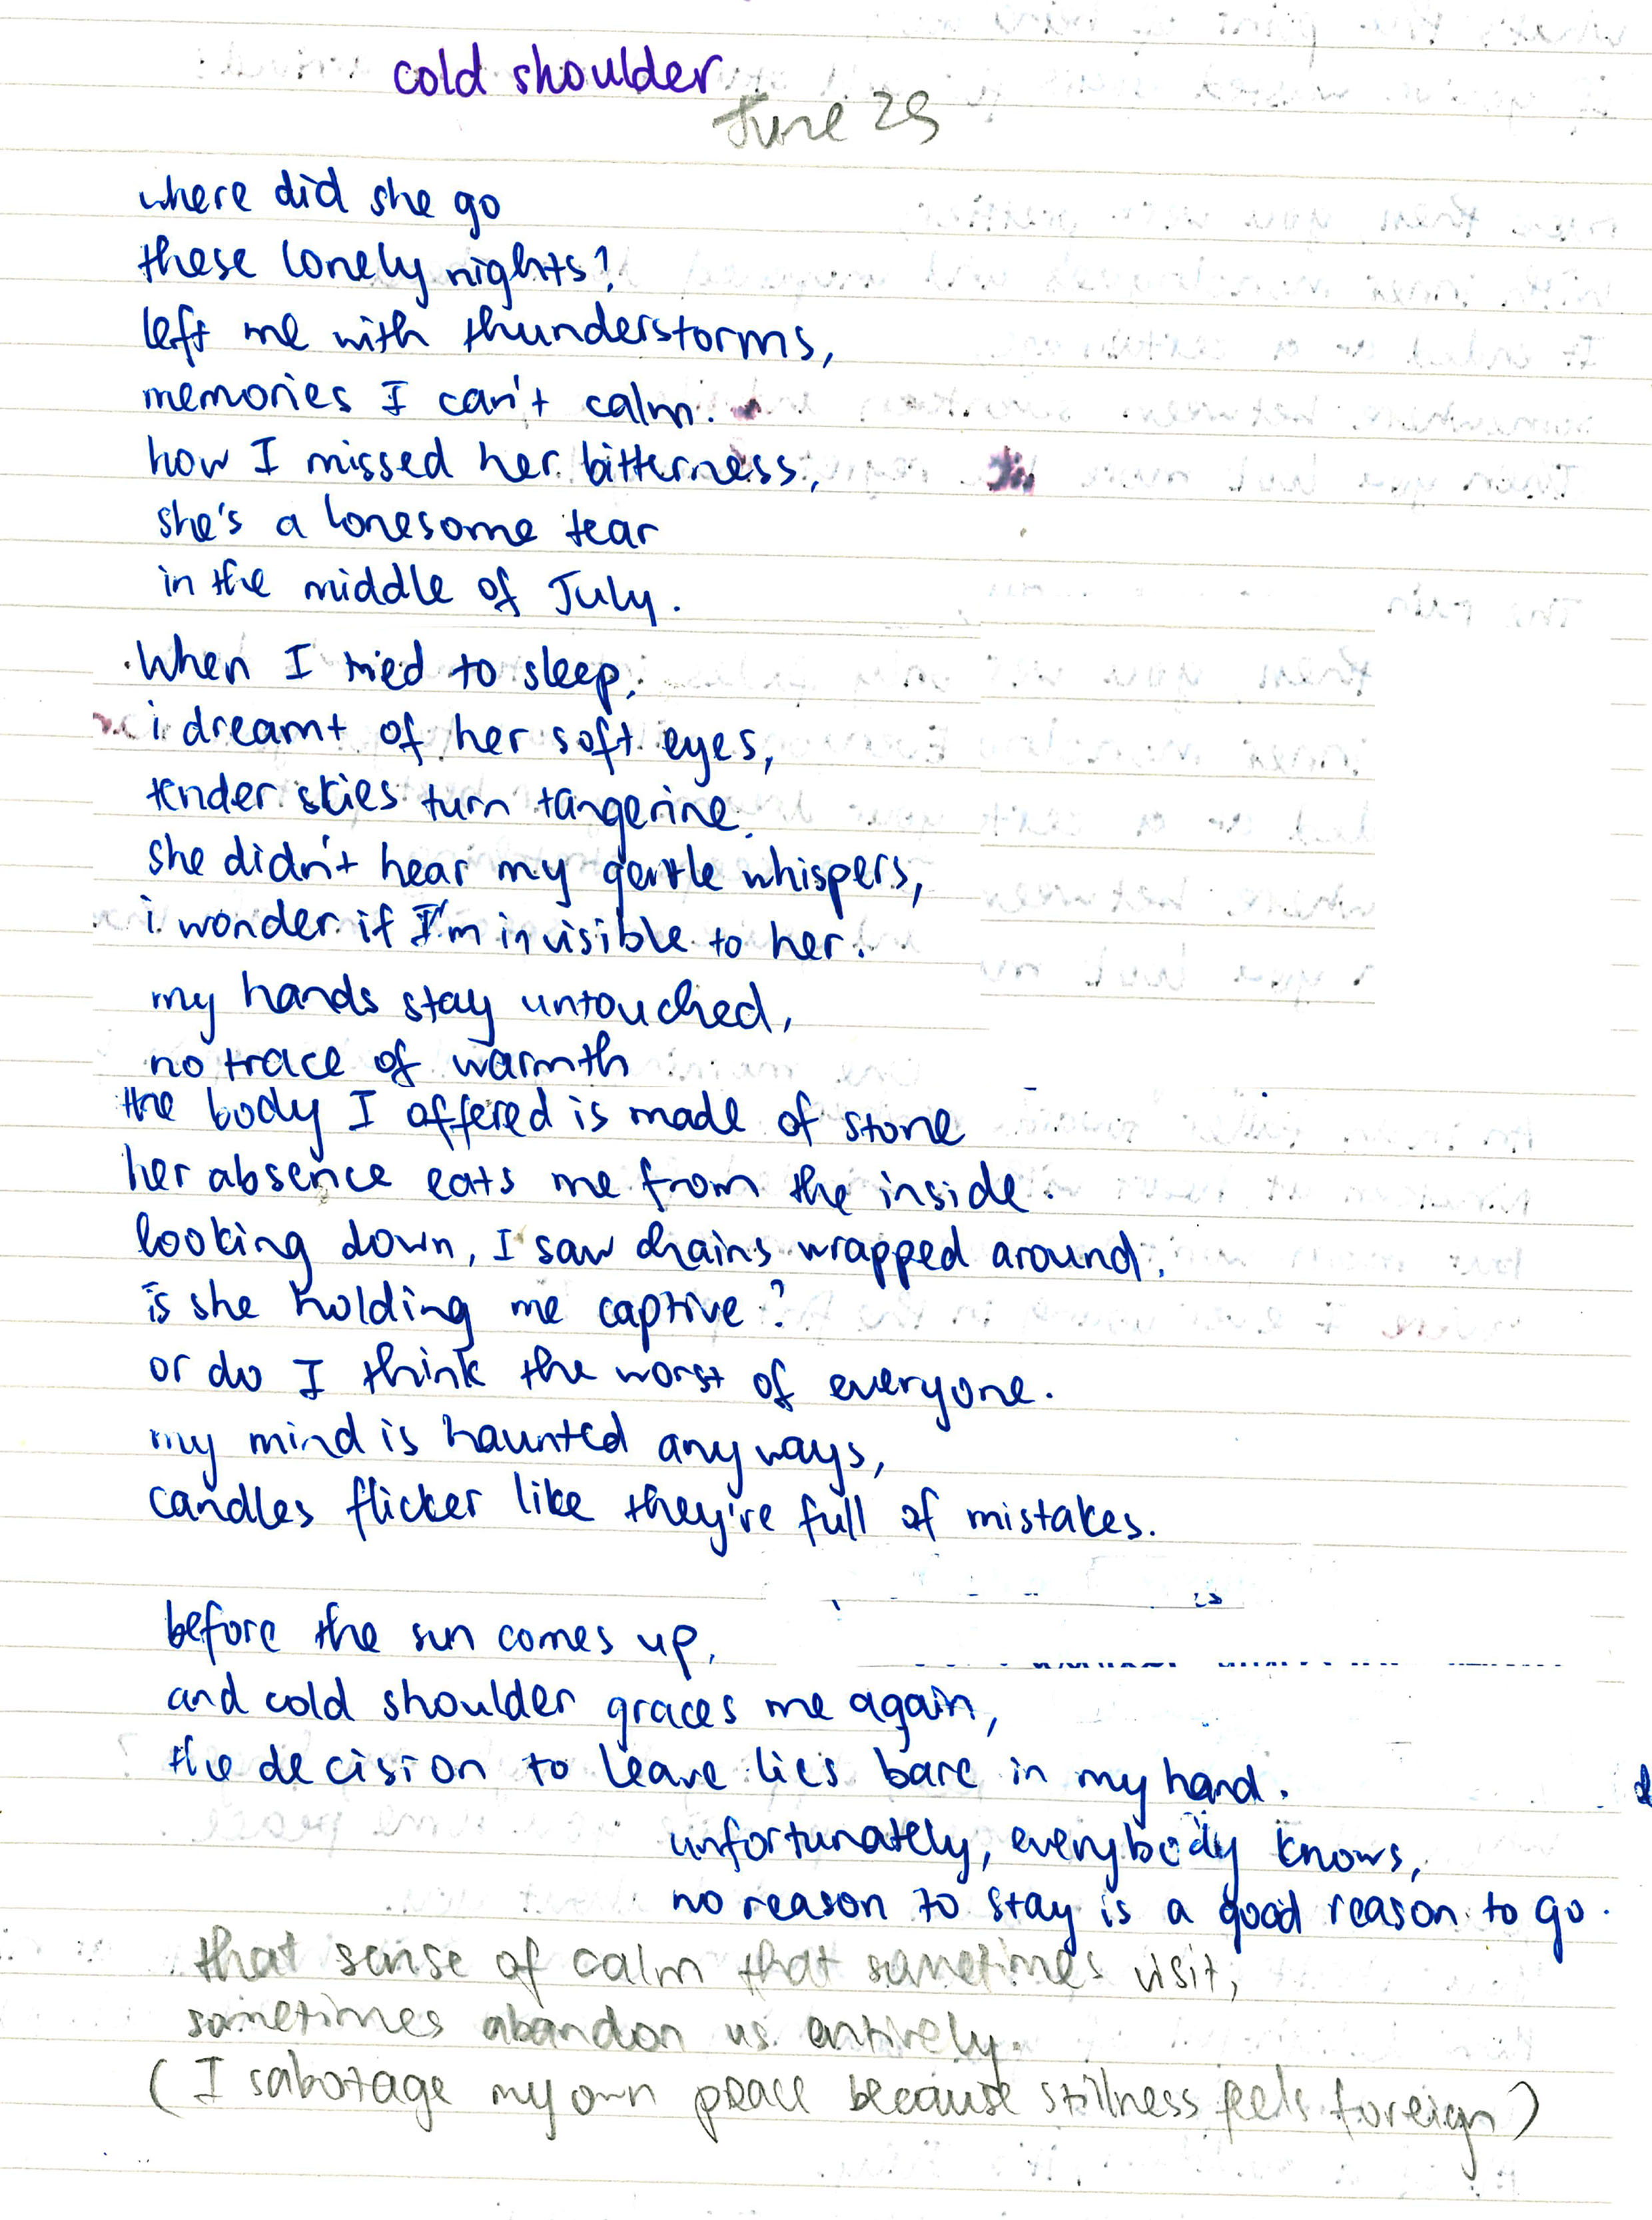 cold shoulder
June 25
where did she go
these lonely nights?
left me with thunderstorms,
memories I can't calm.
how I missed her bitterness,
she's a lonesome tear
in the middle of July.
When I tried to sleep,
i dreamt of her soft eyes,
tender skies turn tangerine.
she didn't hear my gentle whispers,
i wonder if I'm invisible to her.
my hands stay untouched,
no trace of warmth
the body I offered is made of stone
her absence eats me from the inside.
looking down, I saw chains wrapped around.
is she holding me captive?
or do I think the worst of everyone.
my mind is haunted anyways,
candles flicker like they're full of mistakes.
before the sun comes up,
and cold shoulder graces me again,
the decision to leave lies bare in my hand.
unfortunately, everybody knows,
no reason to stay is a good reason to go.
that sense of calm that sometimes visit,
sometimes abandon us entirely.
(I sabotage my own peace because stillness feels foreign)